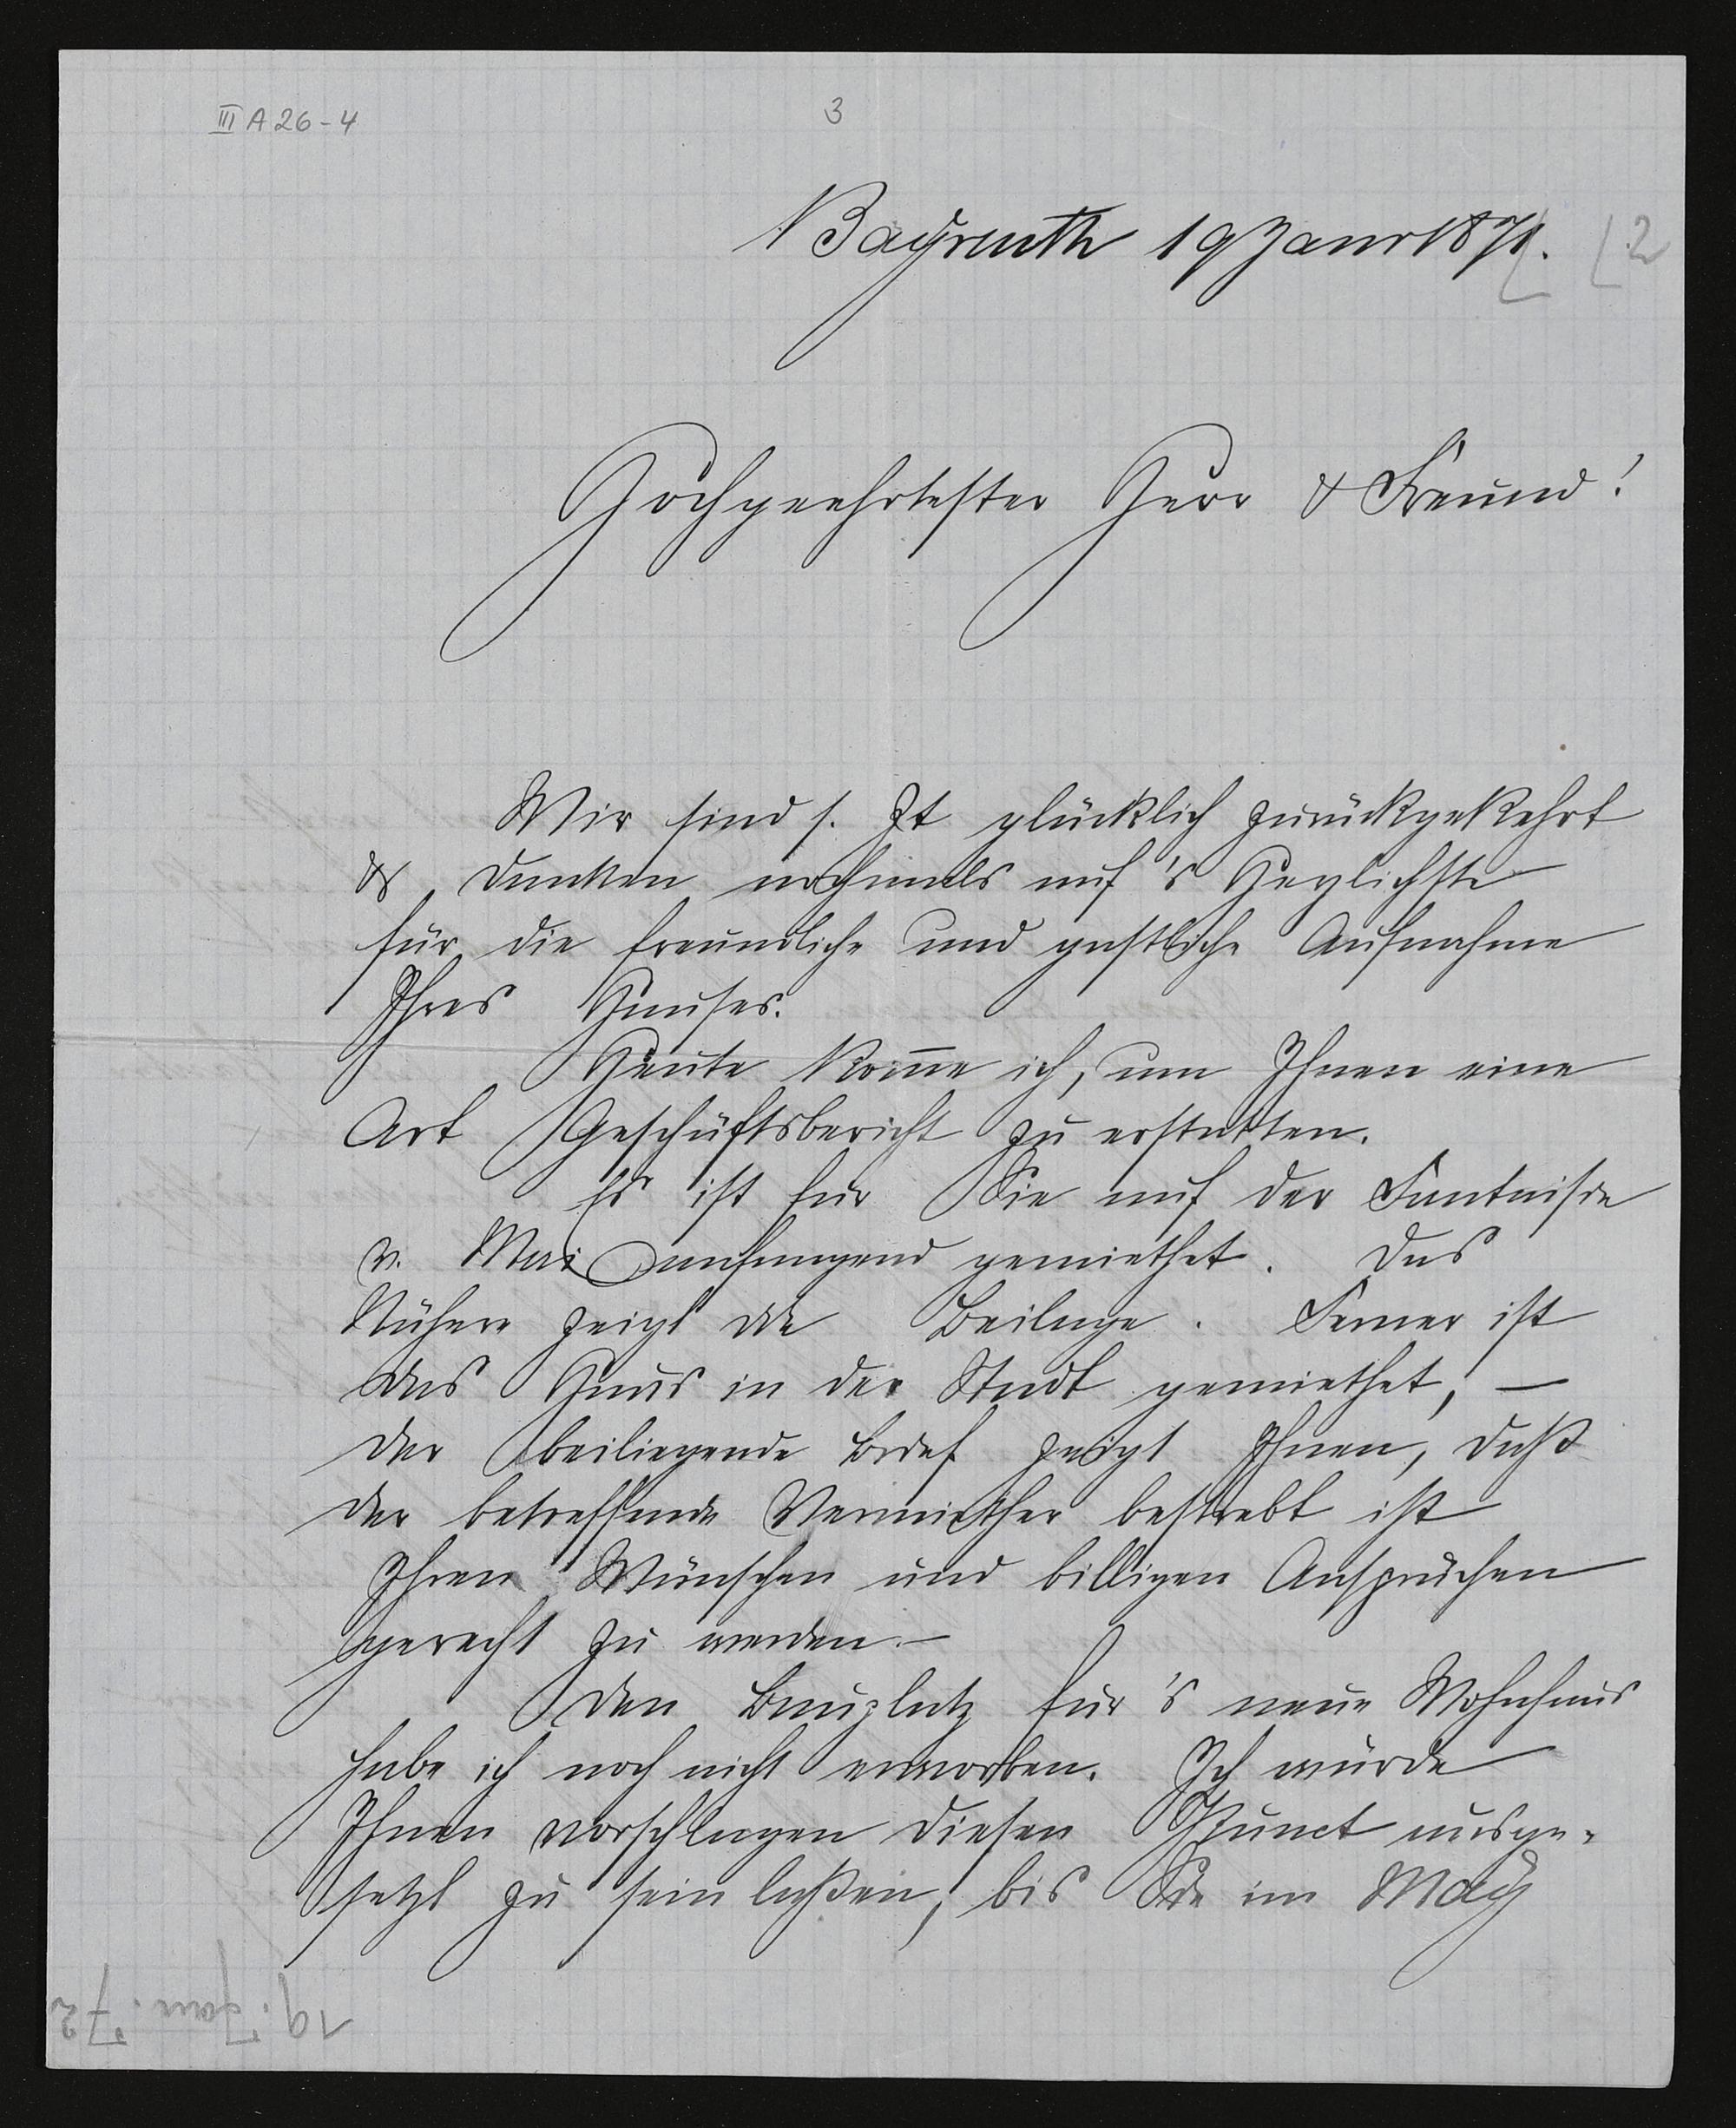 III A 26-4
3
Bayreuth 19 Janr 1871.
[2]
Hochgeehrtester Herr & Freund!
Wir sind s. Zt glücklich zurückgekehrt
& danken nochmals auf's Herzlichste
für die freundliche und gastliche Aufnahme
Ihres Hauses.
Heute kom̅e ich, um Ihnen eine
Art Geschäftsbericht zu erstatten.
Es ist für Sie auf der Fantaisie
v. Mai anfangend gemiethet. Das
Nähere zeigt die Beilage. Ferner ist
das Haus in der Stadt gemiethet, —
der beiliegende Brief zeigt Ihnen, daß
der betreffende Vermiether bestrebt ist
Ihren Wünschen und billigen Ansprüchen
gerecht zu werden. —
Den Bauplatz für's neue Wohnhaus
habe ich noch nicht erworben. Ich würde
Ihnen vorschlagen diesen Punct ausge-
setzt zu sein laßen, bis Sie im May
19. Jan. 72